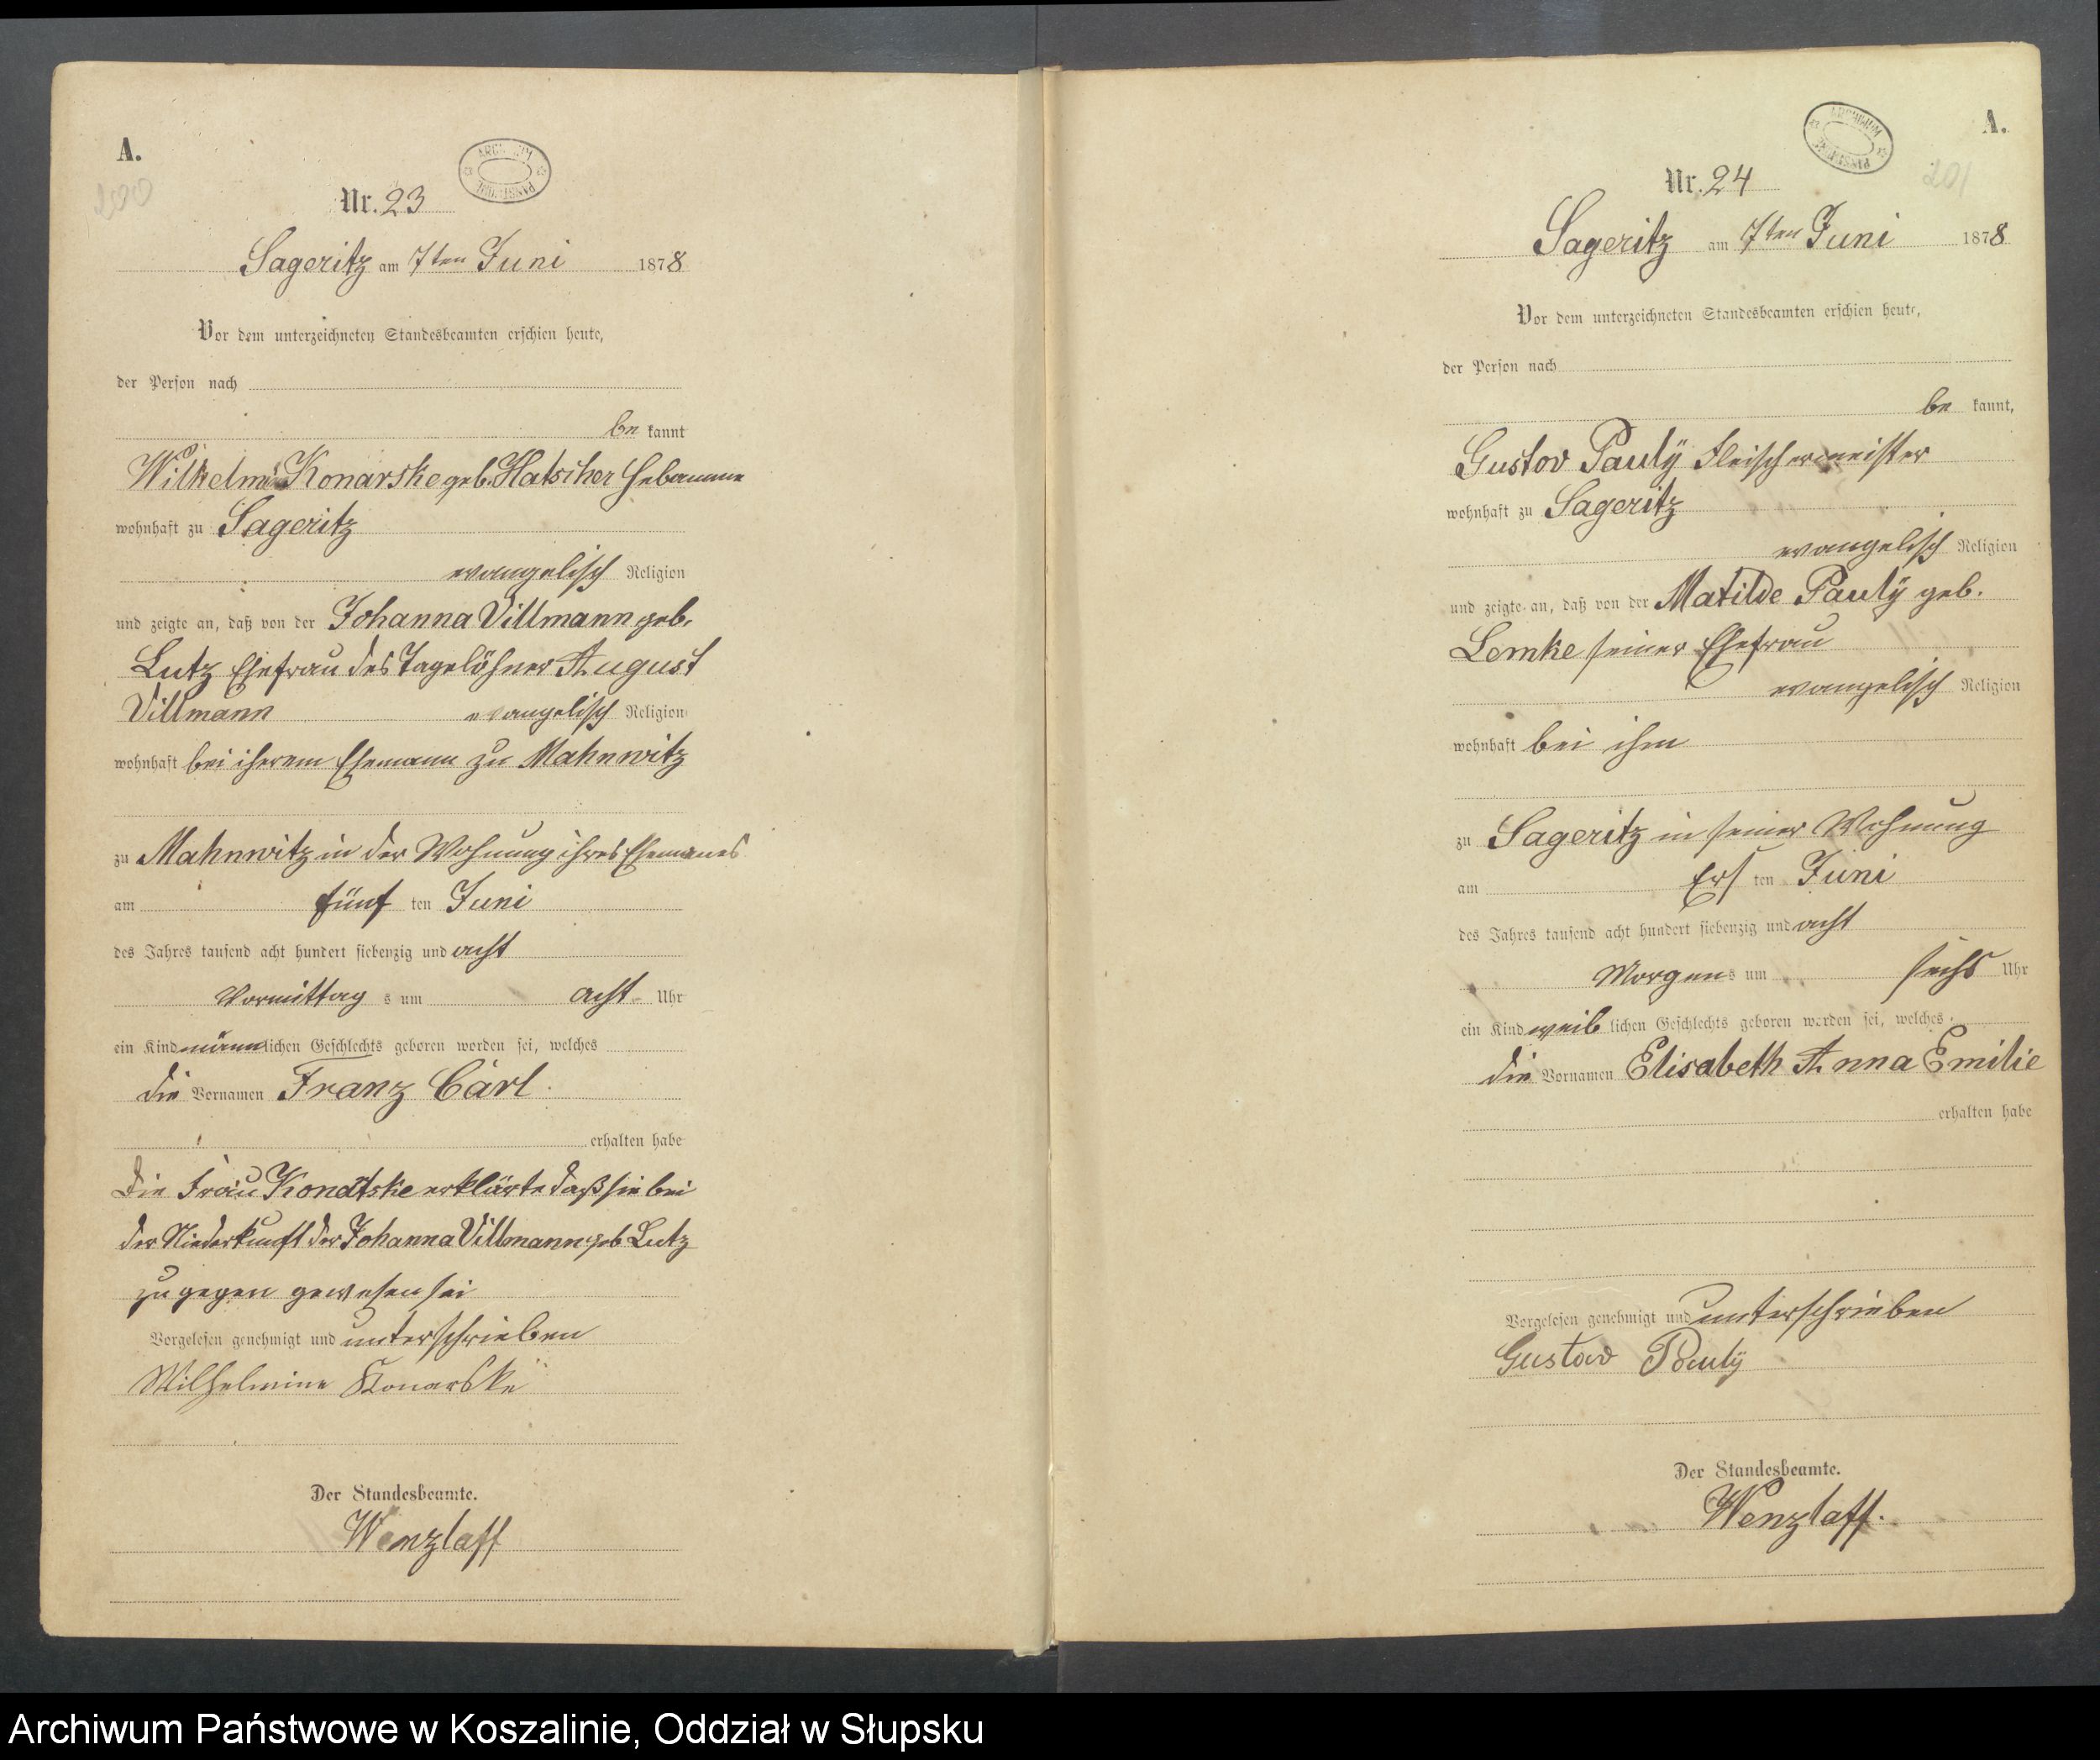 A.
200
ARCHIWUM PAŃSTWOWE
Nr. 23
Sageritz am 7ten Juni 1878
Vor dem unterzeichneten Standesbeamten erschien heute,
der Person nach
be kannt
Konarske geb. Hatscher Hebamme
wohnhaft zu Sageritz
evangelisch Religion
und zeigte an, daß von der Johanna Villmann geb.
Lutz Ehefrau des Tagelöhner August
Villmann evangelisch Religion
wohnhaft bei iherem Ehemann zu Mahnwitz
zu Mahnwitz in der Wohnung ihres Ehemanes
am fünf ten Juni
des Jahres tausend acht hundert siebenzig und acht
Vormittag s um acht Uhr
ein Kind männlichen Geschlechts geboren worden sei, welches
die Vornamen Franz Carl.
erhalten habe
Die Frau erklärte daß sie bei
der Niederkunft der Johanna Villmann geb Lutz
zugegen gewesen sei
Vorgelesen genehmigt und unterschrieben
Wilhelmine Konarske
Der Standesbeamte.
Wenzlaff
A.
201
ARCHIWUM PAŃSTWOWE
Nr. 24
Sageritz am 7ten Juni 1878
Vor dem unterzeichneten Standesbeamten erschien heute,
der Person nach
be kannt,
Gustav Pauly Fleischermeister
wohnhaft zu Sageritz
evangelisch Religion
und zeigte an, daß von der Matilde Pauly geb.
Lemke seiner Ehefrau
evangelisch Religion
wohnhaft bei ihm
zu Sageritz in seiner Wohnung
am Ers ten Juni
des Jahres tausend acht hundert siebenzig und acht
Morgens um sechs Uhr
ein Kind weiblichen Geschlechts geboren worden sei, welches
die Vornamen Elisabeth Anna Emilie
erhalten habe
Vorgelesen genehmigt und unterschrieben
Gustav Pauly
Der Standesbeamte.
Wenzlaff.
Archiwum Państwowe w Koszalinie, Oddział w Słupsku